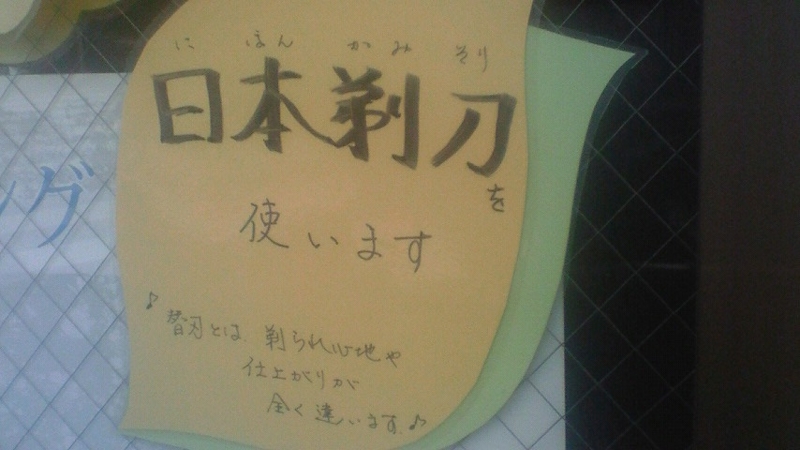 に ほん かみ そり
日本剃刀
を
使います
♪替刃とは、剃られ心地や
仕上がりが
全く違います♪
ング